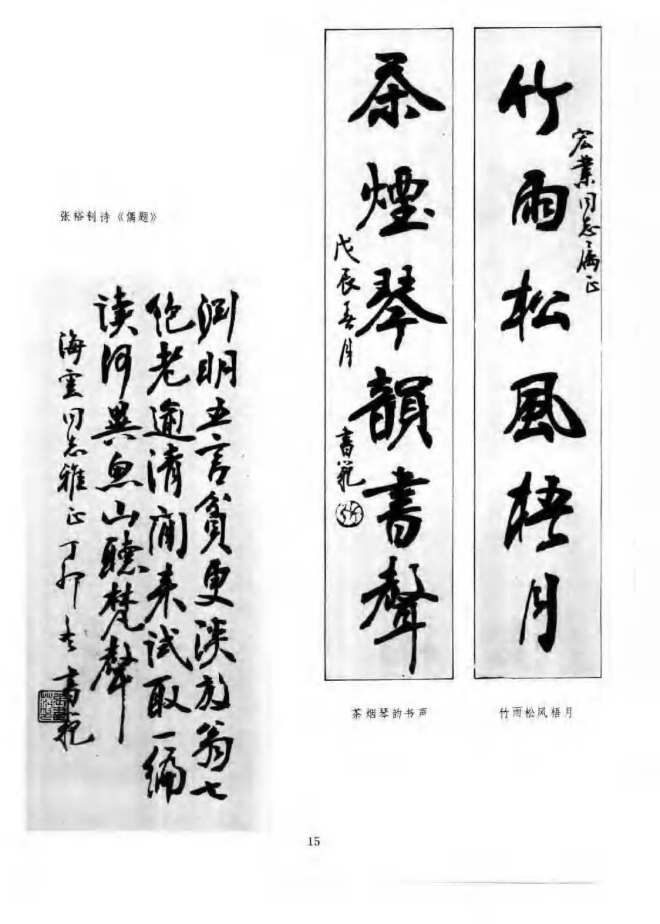 竹雨松風梧月
宏業同志属正
茶煙琴韻書聲
戊辰春月 書範
茶烟琴韵书声
竹雨松风梧月
张裕钊诗《偶题》
渊明五言贫更淡放翁七
绝老逾清閒来试取一编
读何異鱼山聽梵聲
海雲同志雅正 丁卯冬 書範
15